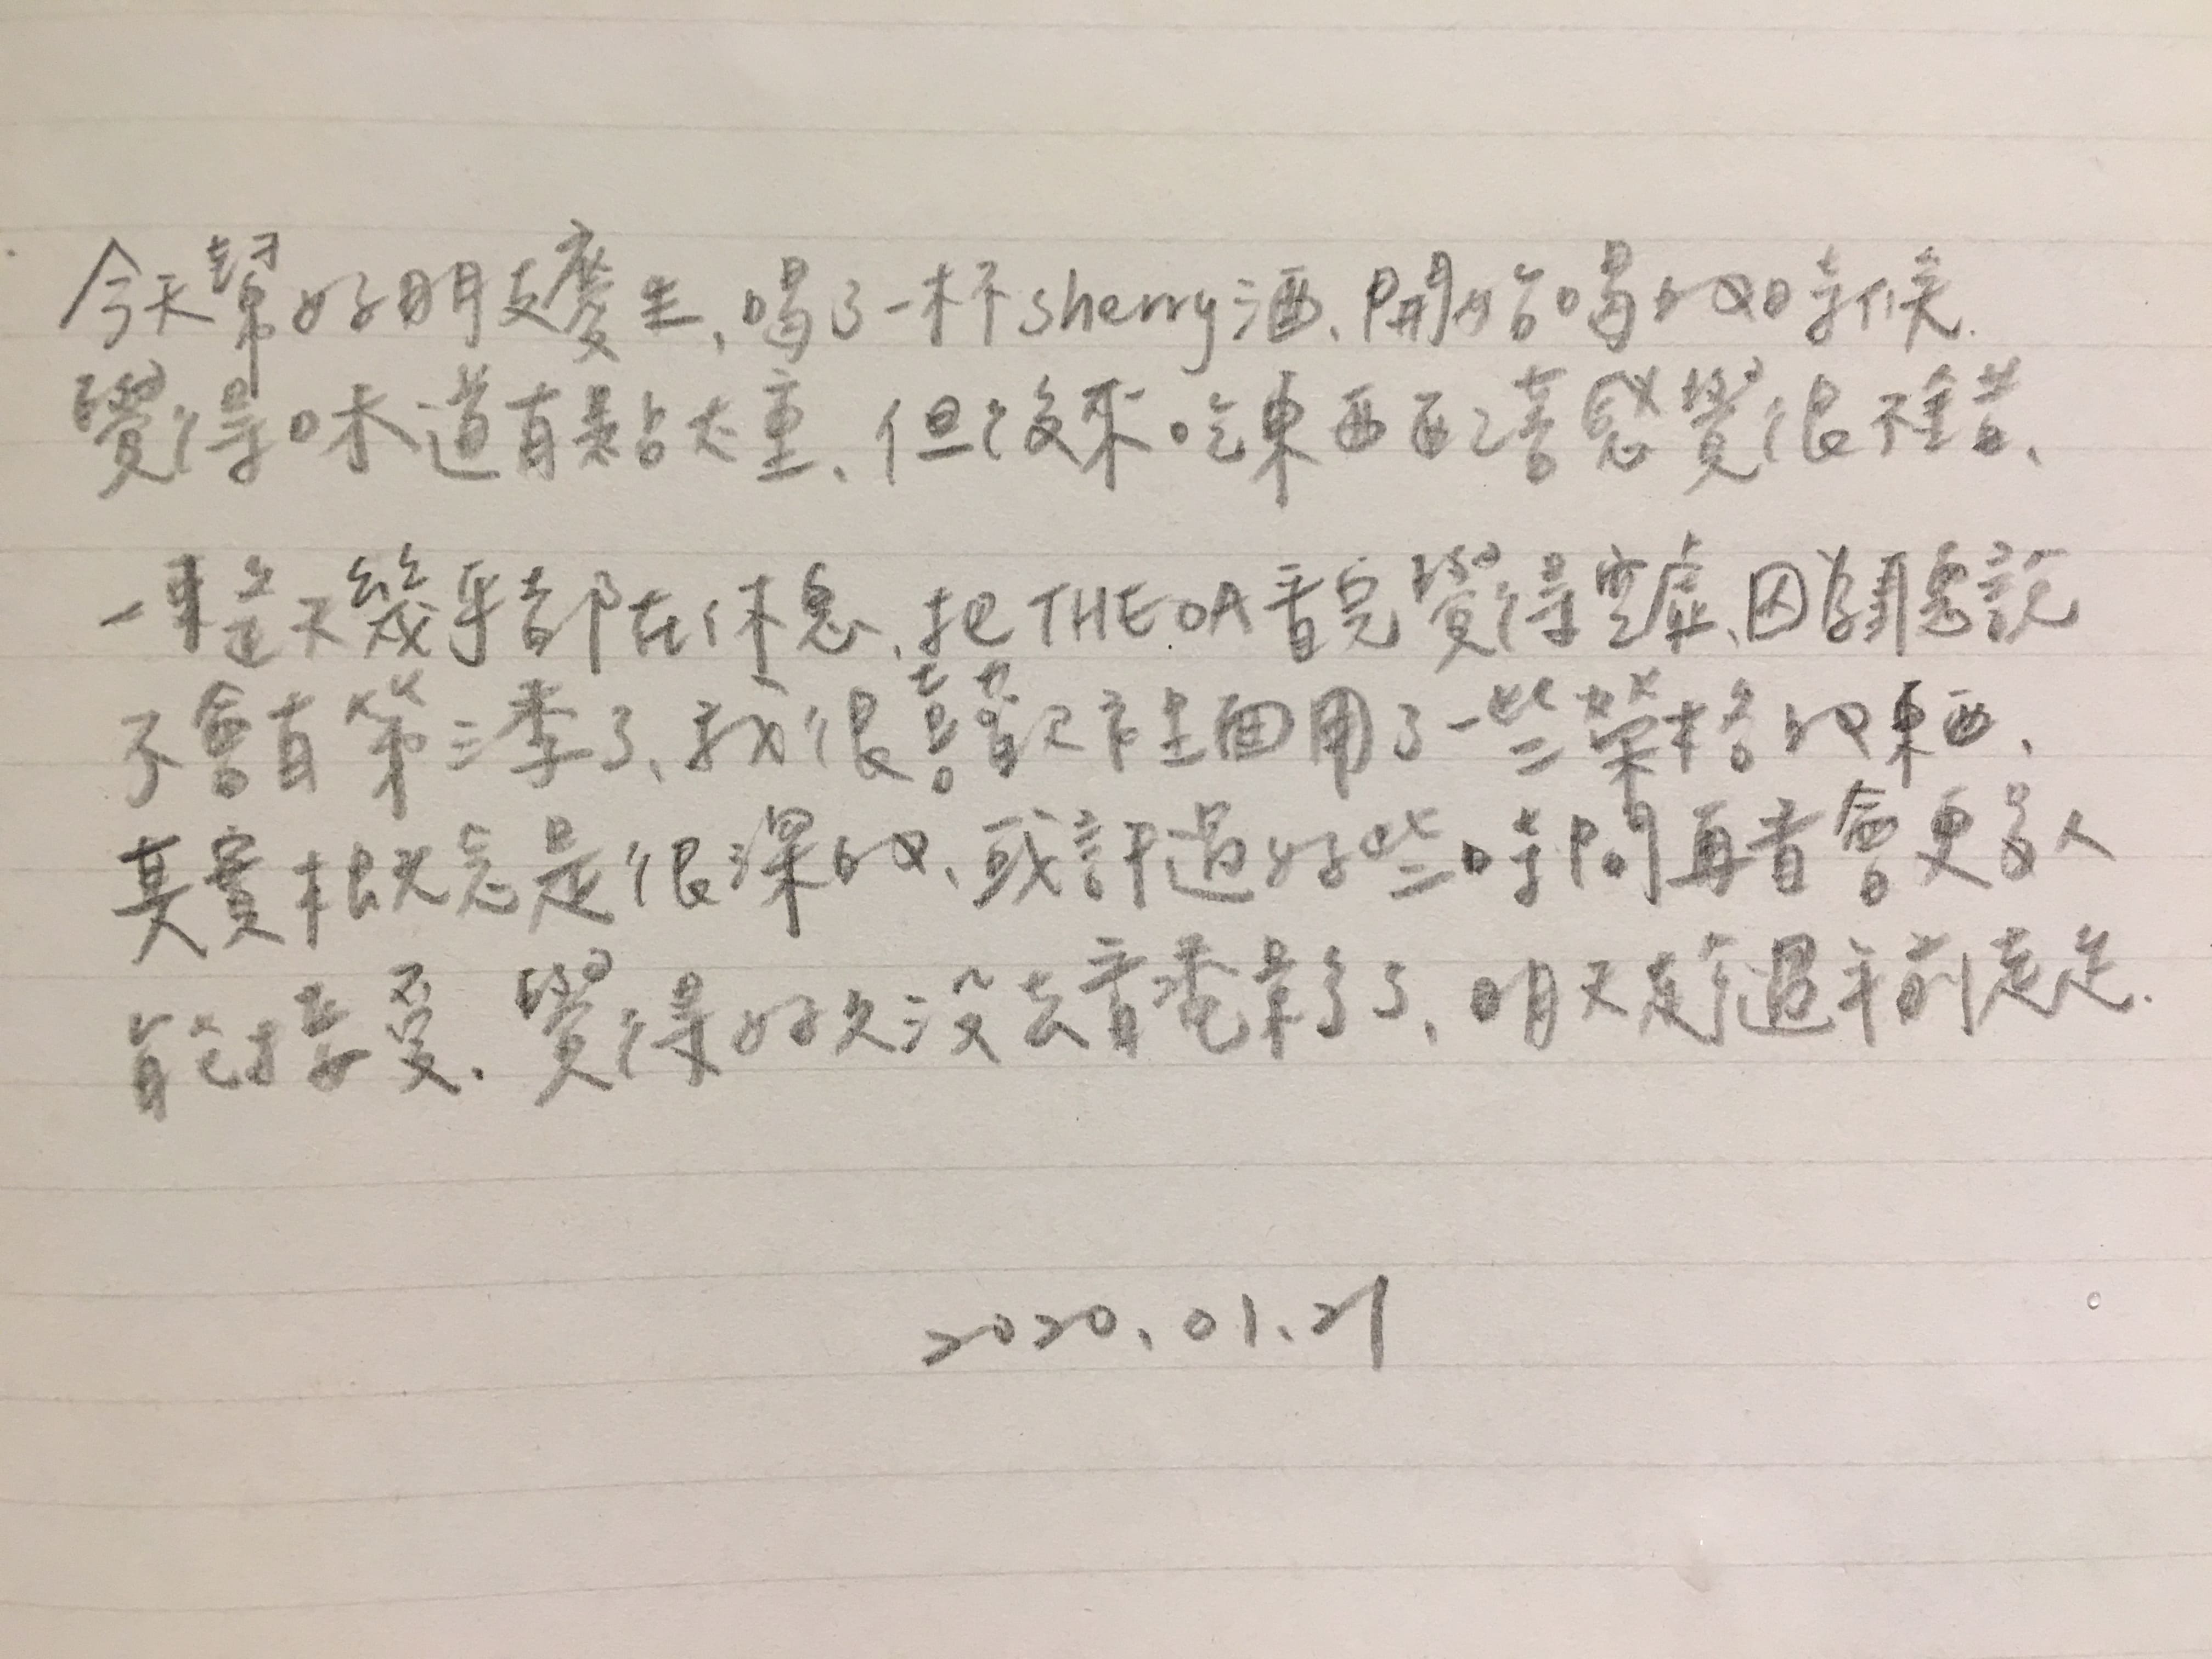 今天幫好朋友慶生、喝了一杯sherry酒、開始喝的時候.
覺得味道有點太重、但後來吃東西配著感覺很不錯、
一連三天幾乎都在休息、把THE OA看完覺得空虛、因為聽說
不會有第三季了、我很喜歡裡面用了一些榮格的東西、
其實概念是很深的、或許過好些時間再看會更多人
能接受.覺得好久沒去看電影了、明天是過年前走走.
2020.01.21